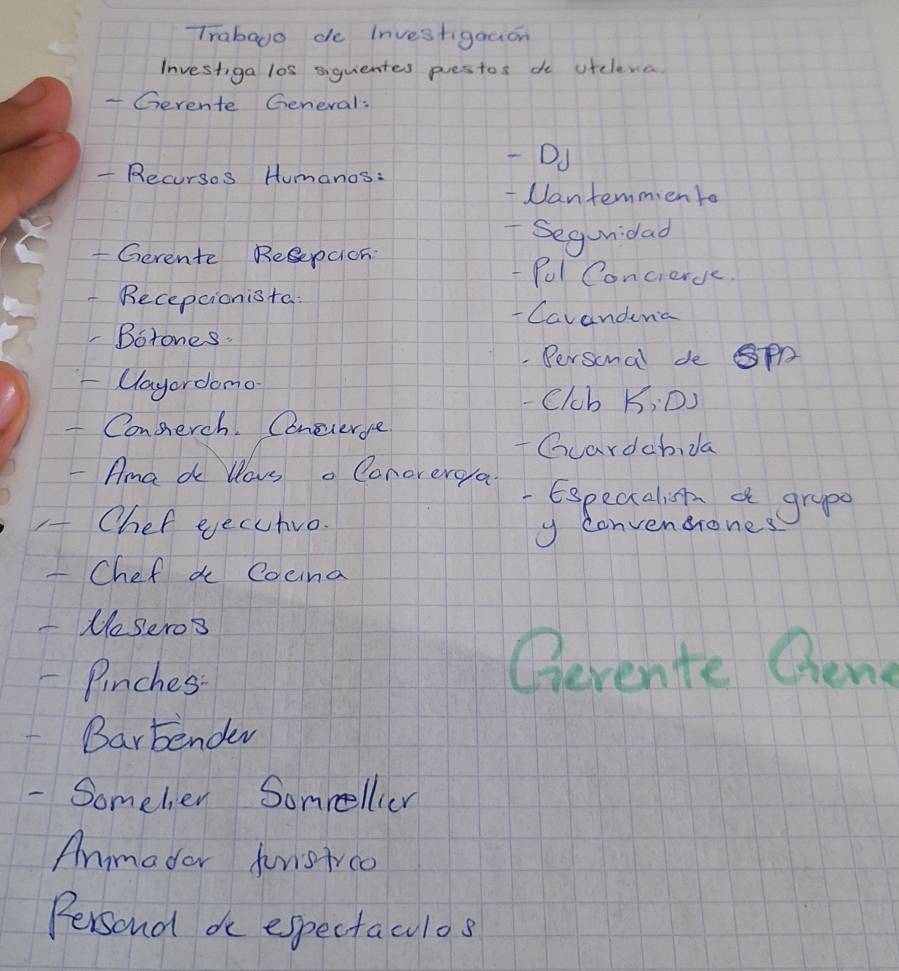 Trabajo de Investigación
Investiga los siguientes puestos de utelería.
- Gerente General:
- Recursos Humanos:
- Gerente Resepcion:
- Recepcionista:
- Botones.
- Mayordomo.
- Conserch. Concierge
- Ama de llavs o Canorerga.
- Chef ejecutivo.
- Chef de Cocina
- Meseros
- Pinches:
- Bartender
- Somelier Sommellier
Animador turistico
Personal de espectaculos
- DJ
- Mantenimiento
- Seguridad
- Pul Concierge.
- Lavanderia
- Personal de SPA
- Club KiDS
- Guardabida
- Especialista de grupo
y convenciones
Gerente Gene